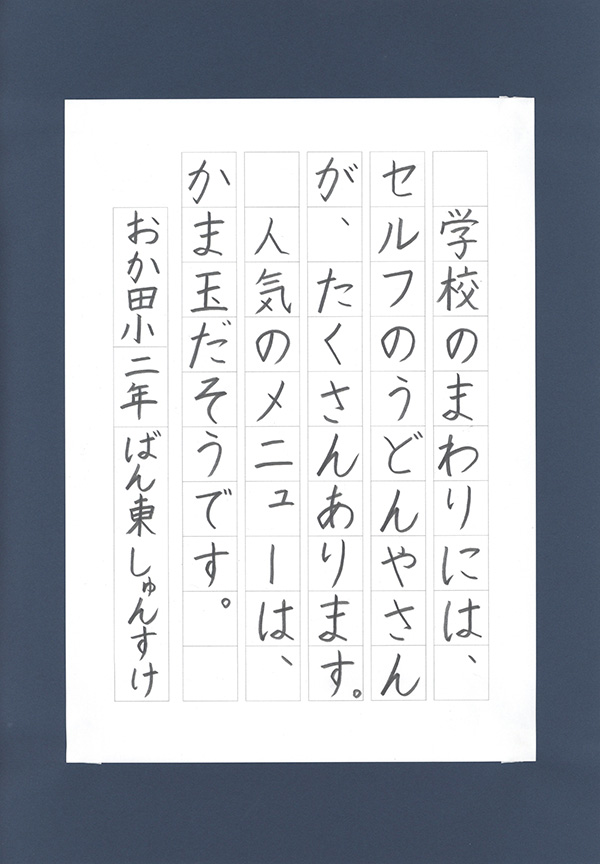 学校のまわりには、
セルフのうどんやさん
が、たくさんあります。
人気のメニューは、
かま玉だそうです。
おか田小二年ばん東しゅんすけ